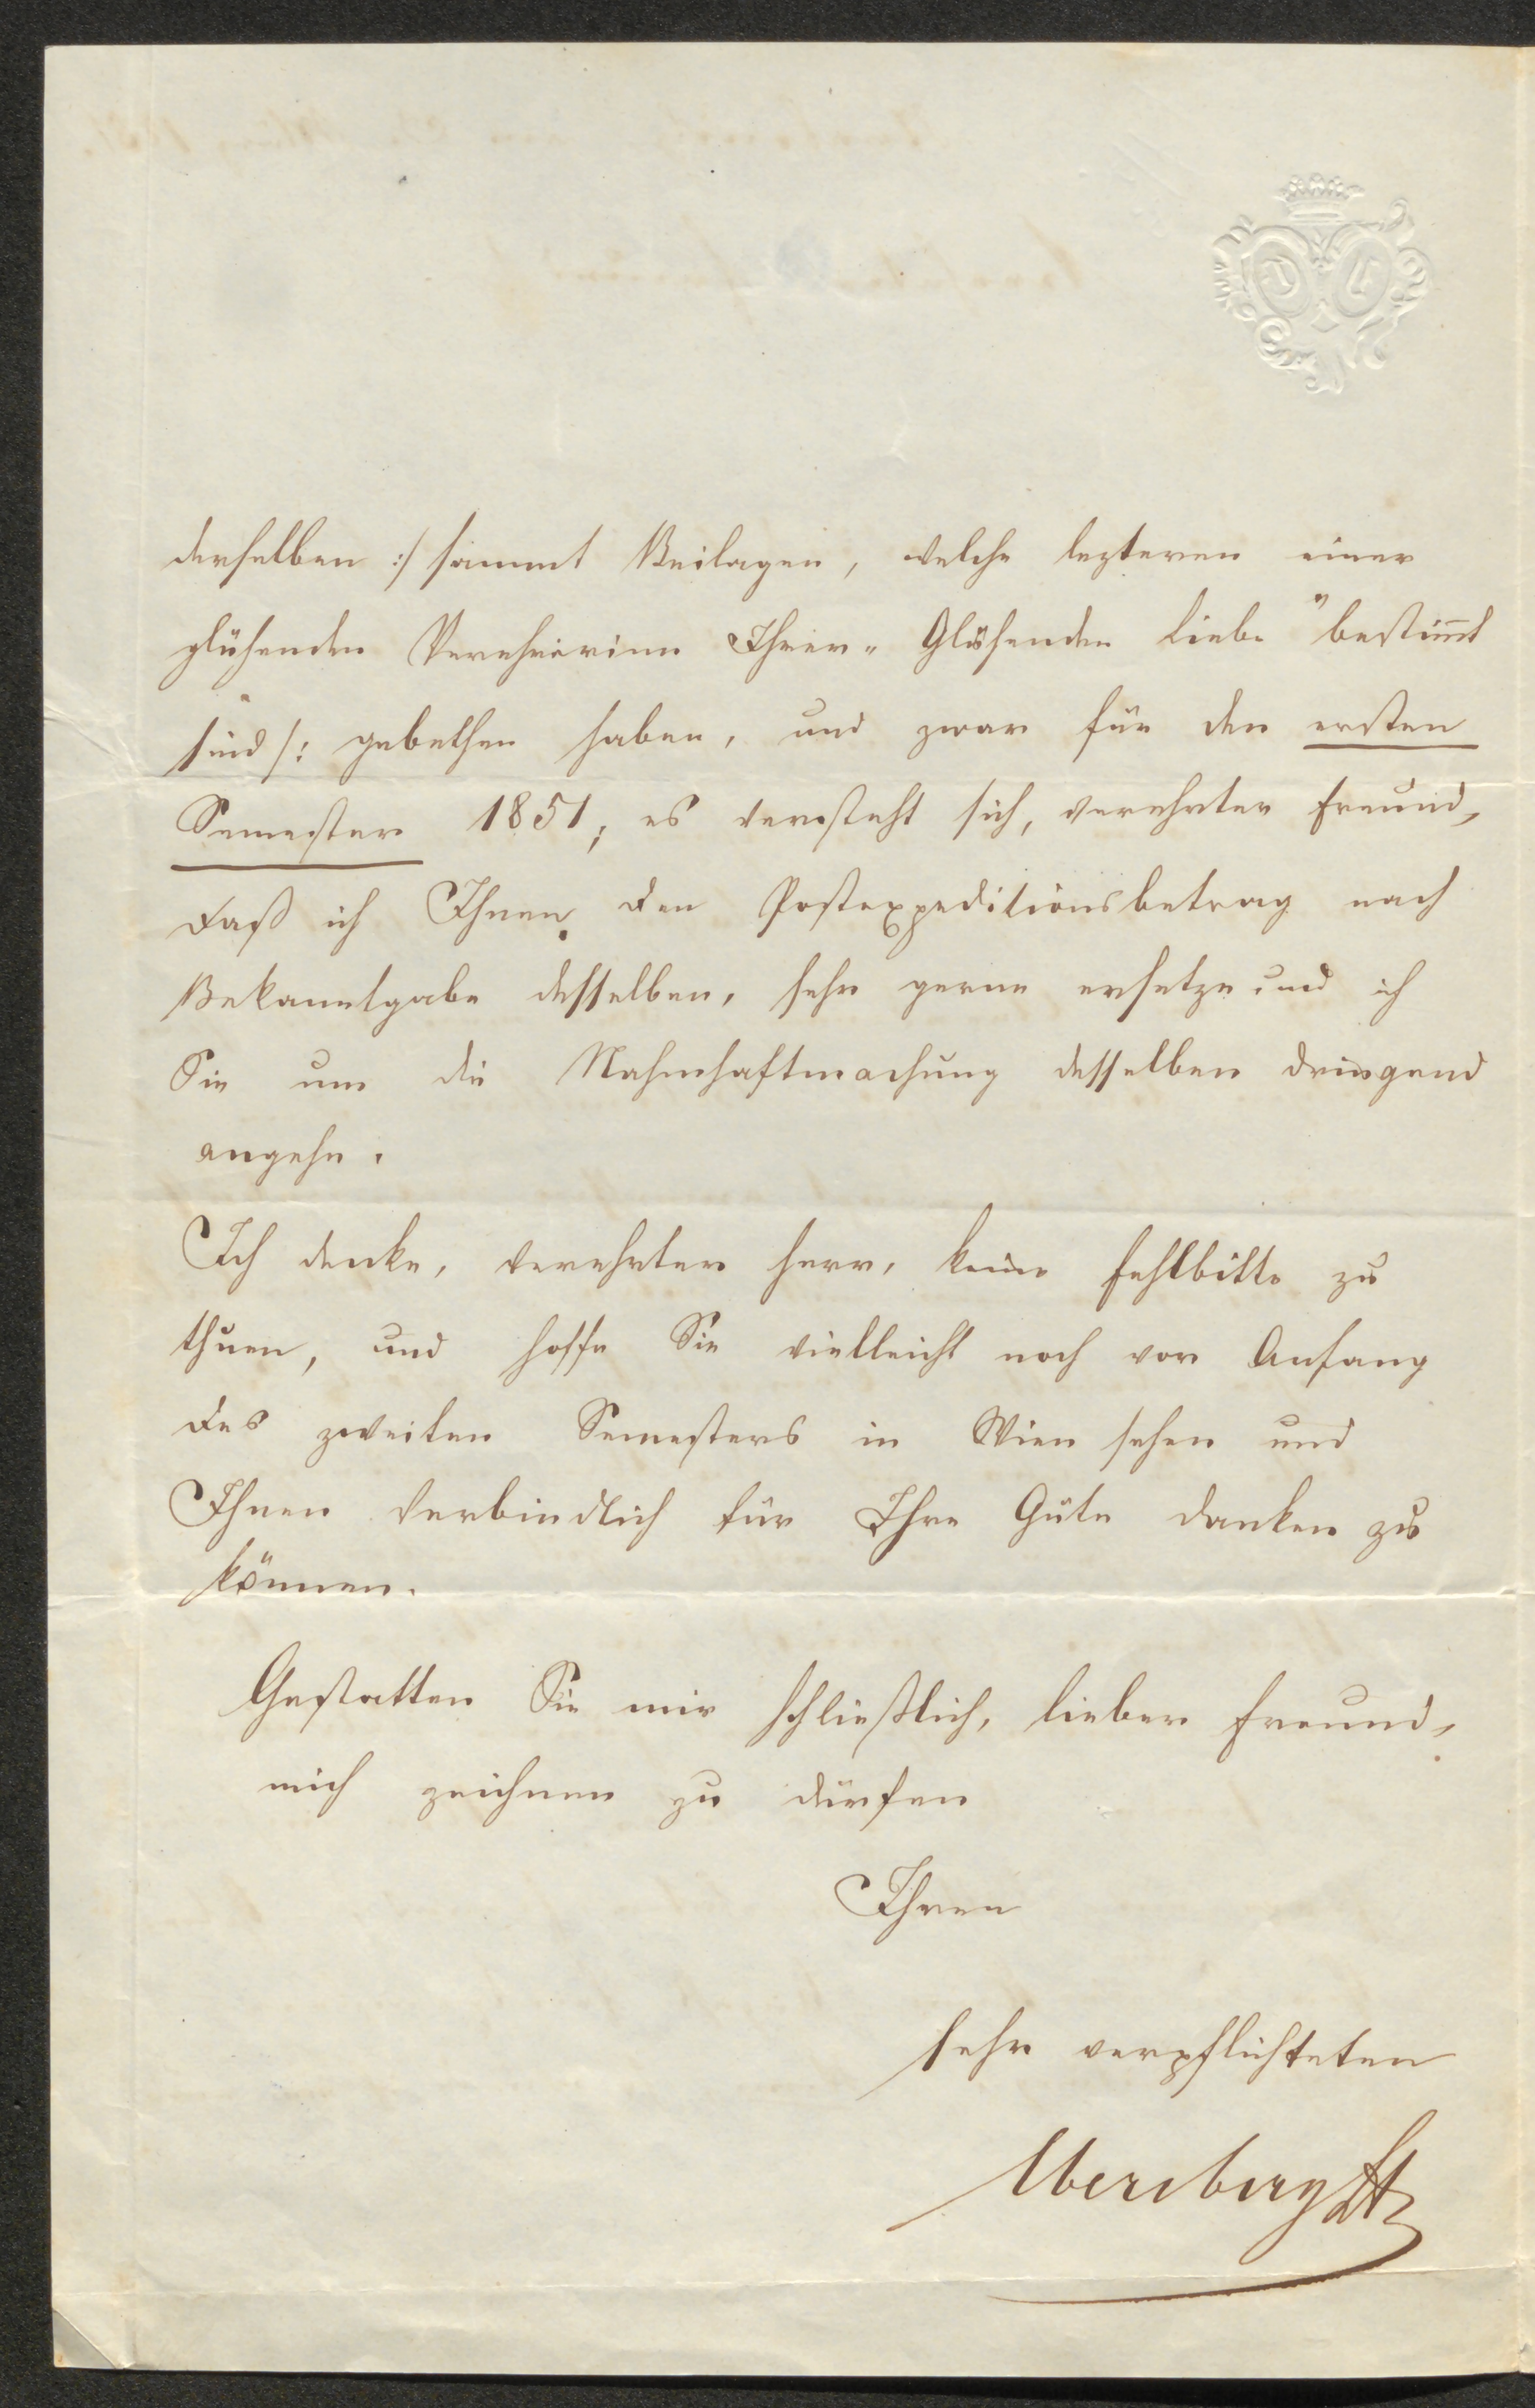 derselben :/ sammt Beilagen, welche lezteren einer
glühenden Verehrerinn Ihrer „Glühenden Liebe" bestim̄t
sind /: gebethen haben, und zwar für den ersten
Semester 1851, es versteht sich, verehrter Freund,
daß ich Ihnen den Postexpeditionsbetrag nach
Bekanntgabe desselben, sehr gerne ersetze und ich
Sie um die Nahmhaftmachung desselben dringend
angehe.
Ich denke, verehrter Herr, keine Fehlbitte zu
thuen, und hoffe Sie vielleicht noch vor Anfang
des zweiten Semesters in Wien sehen und
Ihnen verbindlich für Ihre Güte danken zu
können.
Gestatten Sie mir schließlich, lieber Freund,
mich zeichnen zu dürfen
Ihren
sehr verpflichteten